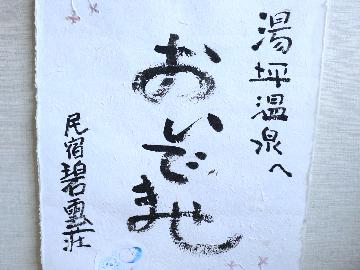 湯坪温泉へ
おいでませ
民宿碧雲荘